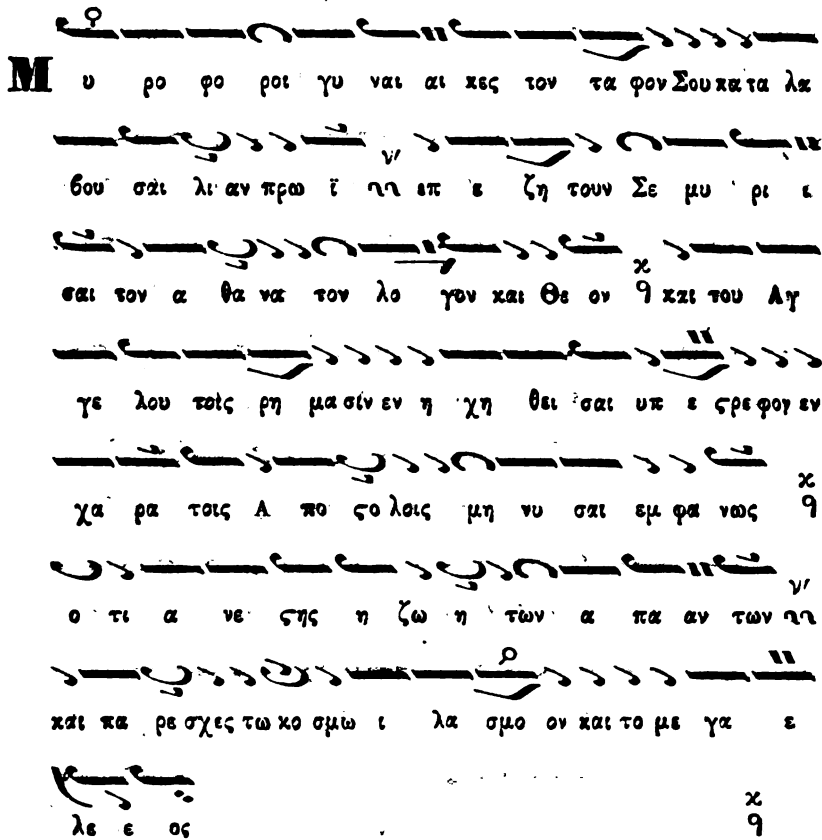 Μ υ ρο φο ροι γυ ναι αι κες τον τα φον Σου κα τα λα
βου σαι λι αν πρω ϊ επ ε ζη τουν Σε μυ ρι ε
σαι τον α θα να τον λο γον και Θε ον και του Αγ
γε λου τοις ρη μα σιν εν η χη θει σαι υπ ε ϛρε φον εν
χα ρα τοις Α πο ϛο λοις μη νυ σαι εμ φα νως
ο τι α νε ϛης η ζω η των α πα αν των
και πα ρε σχες τω κο σμω ι λα σμο ον και το με γα ε
λε ε ος